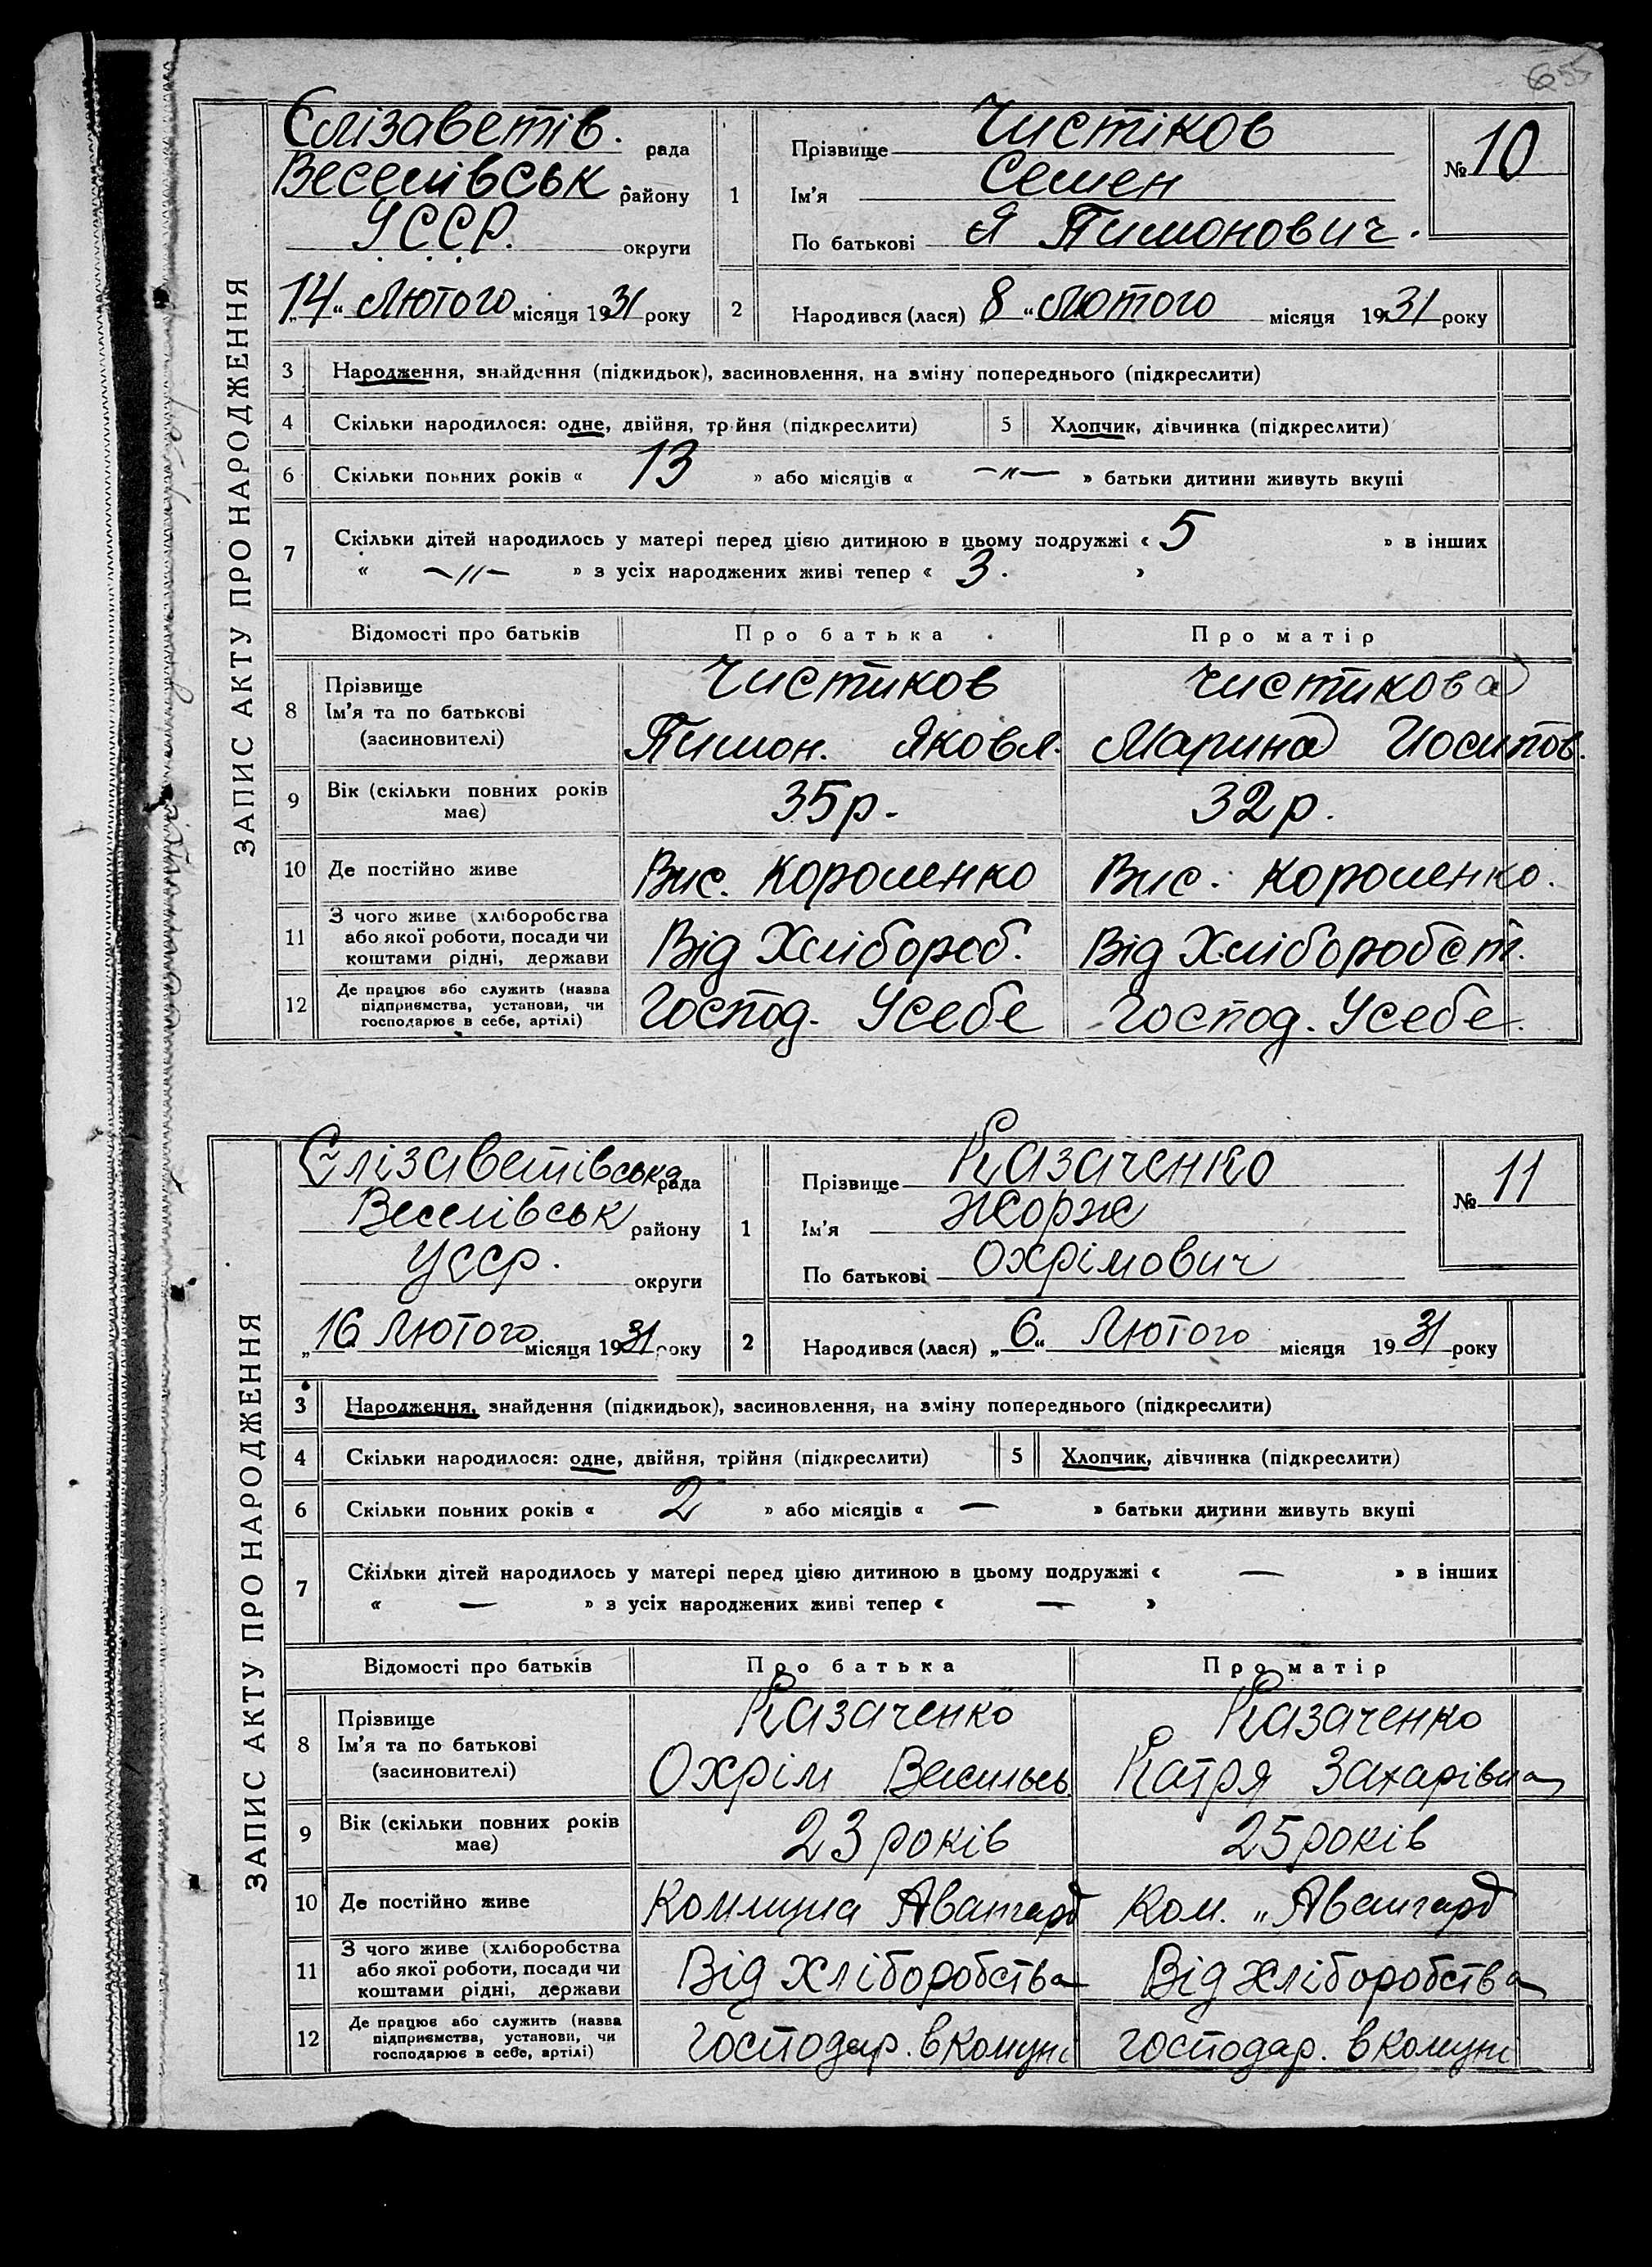 655
ЗАПИС АКТУ ПРО НАРОДЖЕННЯ
Єлізаветів. рада
Веселівськ району
УССР. округи
"14" Лютого місяця 1931 року
1 Прізвище Чистіков
Ім'я Семен
По батькові Я Тимонович.
№ 10
2 Народився (лася) "8" Лютого місяця 1931 року
3 Народження, знайдення (підкидьок), засиновлення, на зміну попереднього (підкреслити)
4 Скільки народилося: одне, двійня, трійня (підкреслити) 5 Хлопчик, дівчинка (підкреслити)
6 Скільки повних років « 13 » або місяців « —"— » батьки дитини живуть вкупі
7 Скільки дітей народилось у матері перед цією дитиною в цьому подружжі « 5 » в інших
« —"— » з усіх народжених живі тепер « 3. »
Відомості про батьків Про батька Про матір
8 Прізвище Чистиков Чистикова
Ім'я та по батькові
(засиновителі) Тимон. Яковл. Марина Иосипов.
9 Вік (скільки повних років має) 35р. 32р.
10 Де постійно живе Вис. Короленко Вис. Короленко.
11 З чого живе (хліборобства
або якої роботи, посади чи
коштами рідні, держави Від Хлібороб. Від Хліборобст.
12 Де працює або служить (назва
підприємства, установи, чи
господарює в себе, артілі) Господ. Усебе Господ. Усебе.
ЗАПИС АКТУ ПРО НАРОДЖЕННЯ
Єлізаветівська рада
Веселівськ району
УССР. округи
"16" Лютого місяця 1931 року
1 Прізвище Казаченко
Ім'я Жорж
По батькові Охрімович
№ 11
2 Народився (лася) "6" Лютого місяця 1931 року
3 Народження, знайдення (підкидьок), засиновлення, на зміну попереднього (підкреслити)
4 Скільки народилося: одне, двійня, трійня (підкреслити) 5 Хлопчик, дівчинка (підкреслити)
6 Скільки повних років « 2 » або місяців « — » батьки дитини живуть вкупі
7 Скільки дітей народилось у матері перед цією дитиною в цьому подружжі « — » в інших
« — » з усіх народжених живі тепер « — »
Відомості про батьків Про батька Про матір
8 Прізвище Казаченко Казаченко
Ім'я та по батькові
(засиновителі) Охрім Васильев Катря Захарівна
9 Вік (скільки повних років має) 23 років 25 років
10 Де постійно живе Коммуна Авангард Ком. "Авангард
11 З чого живе (хліборобства
або якої роботи, посади чи
коштами рідні, держави Від хліборобства Від хліборобства
12 Де працює або служить (назва
підприємства, установи, чи
господарює в себе, артілі) господар. в комуні господар. в комуні